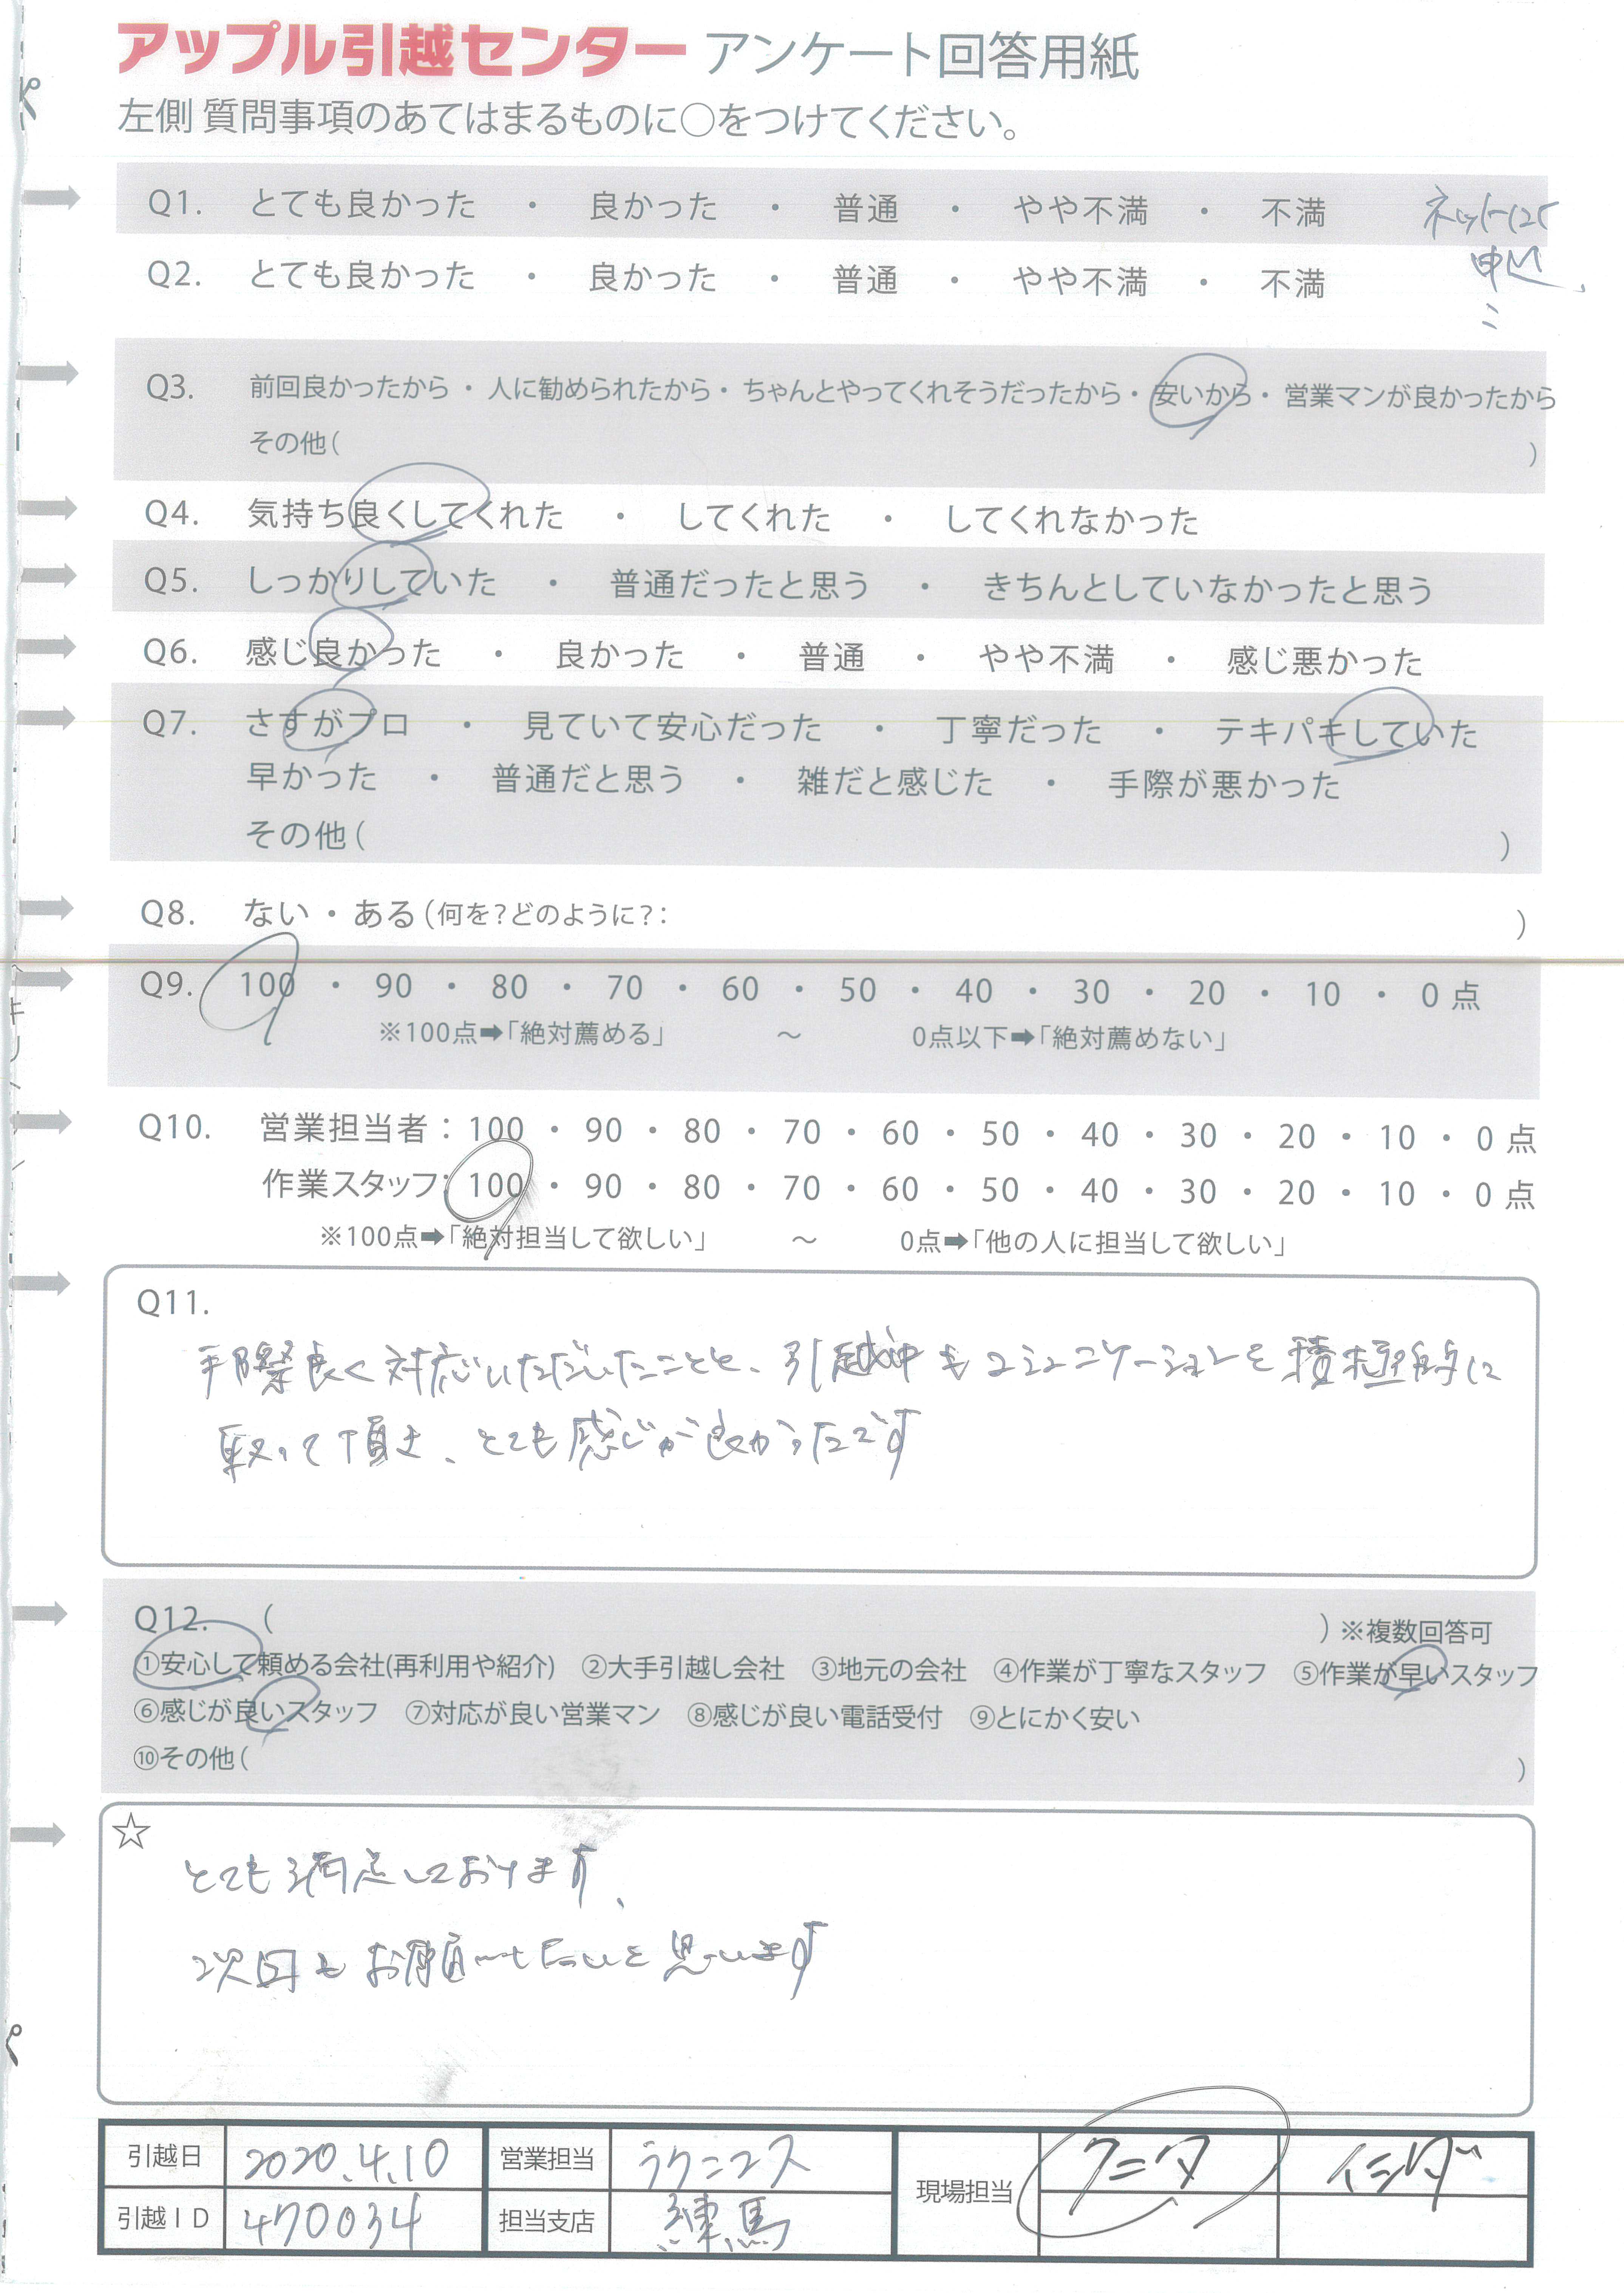 アップル引越センター アンケート回答用紙
左側 質問事項のあてはまるものに○をつけてください。
Q1. とても良かった ・ 良かった ・ 普通 ・ やや不満 ・ 不満
ネットにて
申込
Q2. とても良かった ・ 良かった ・ 普通 ・ やや不満 ・ 不満
Q3. 前回良かったから ・ 人に勧められたから ・ ちゃんとやってくれそうだったから ・ 安いから ・ 営業マンが良かったから
その他( )
Q4. 気持ち良くしてくれた ・ してくれた ・ してくれなかった
Q5. しっかりしていた ・ 普通だったと思う ・ きちんとしていなかったと思う
Q6. 感じ良かった ・ 良かった ・ 普通 ・ やや不満 ・ 感じ悪かった
Q7. さすがプロ ・ 見ていて安心だった ・ 丁寧だった ・ テキパキしていた
早かった ・ 普通だと思う ・ 雑だと感じた ・ 手際が悪かった
その他( )
Q8. ない ・ ある(何を?どのように?: )
Q9. 100 ・ 90 ・ 80 ・ 70 ・ 60 ・ 50 ・ 40 ・ 30 ・ 20 ・ 10 ・ 0 点
※100点➡「絶対薦める」 ～ 0点以下➡「絶対薦めない」
Q10. 営業担当者：100 ・ 90 ・ 80 ・ 70 ・ 60 ・ 50 ・ 40 ・ 30 ・ 20 ・ 10 ・ 0 点
作業スタッフ：100 ・ 90 ・ 80 ・ 70 ・ 60 ・ 50 ・ 40 ・ 30 ・ 20 ・ 10 ・ 0 点
※100点➡「絶対担当して欲しい」 ～ 0点➡「他の人に担当して欲しい」
Q11.
手際良く対応いただいたことと、引越中もコミュニケーションを積極的に
取って頂き、とても感じが良かったです
Q12. ( ) ※複数回答可
①安心して頼める会社(再利用や紹介) ②大手引越し会社 ③地元の会社 ④作業が丁寧なスタッフ ⑤作業が早いスタッフ
⑥感じが良いスタッフ ⑦対応が良い営業マン ⑧感じが良い電話受付 ⑨とにかく安い
⑩その他( )
☆
とても満足しております、
次回もお願いしたいと思います
引越日 2020.4.10 営業担当 ラクニコス 現場担当 クニタ イシダ
引越ID 470034 担当支店 練馬